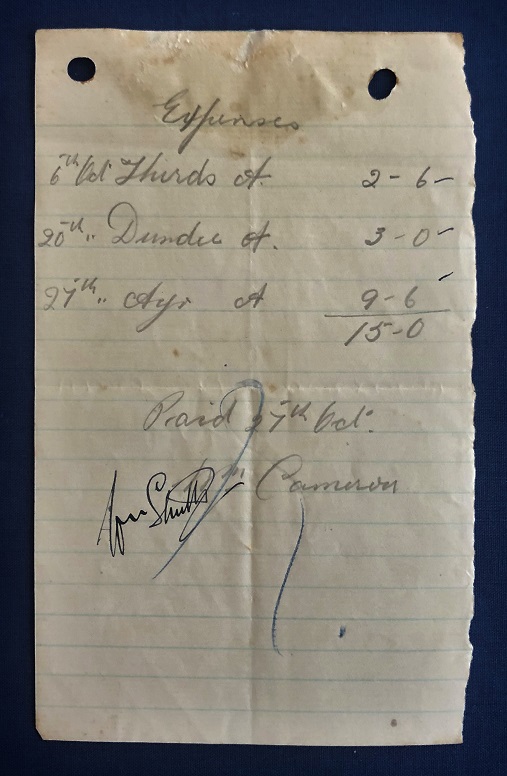 Expenses
6th Oct Thirds A. 2-6-
20th " Dundee A. 3-0-
27th " Ayr A 9-6
15-0
Paid 27th Oct.
Wm Cameron